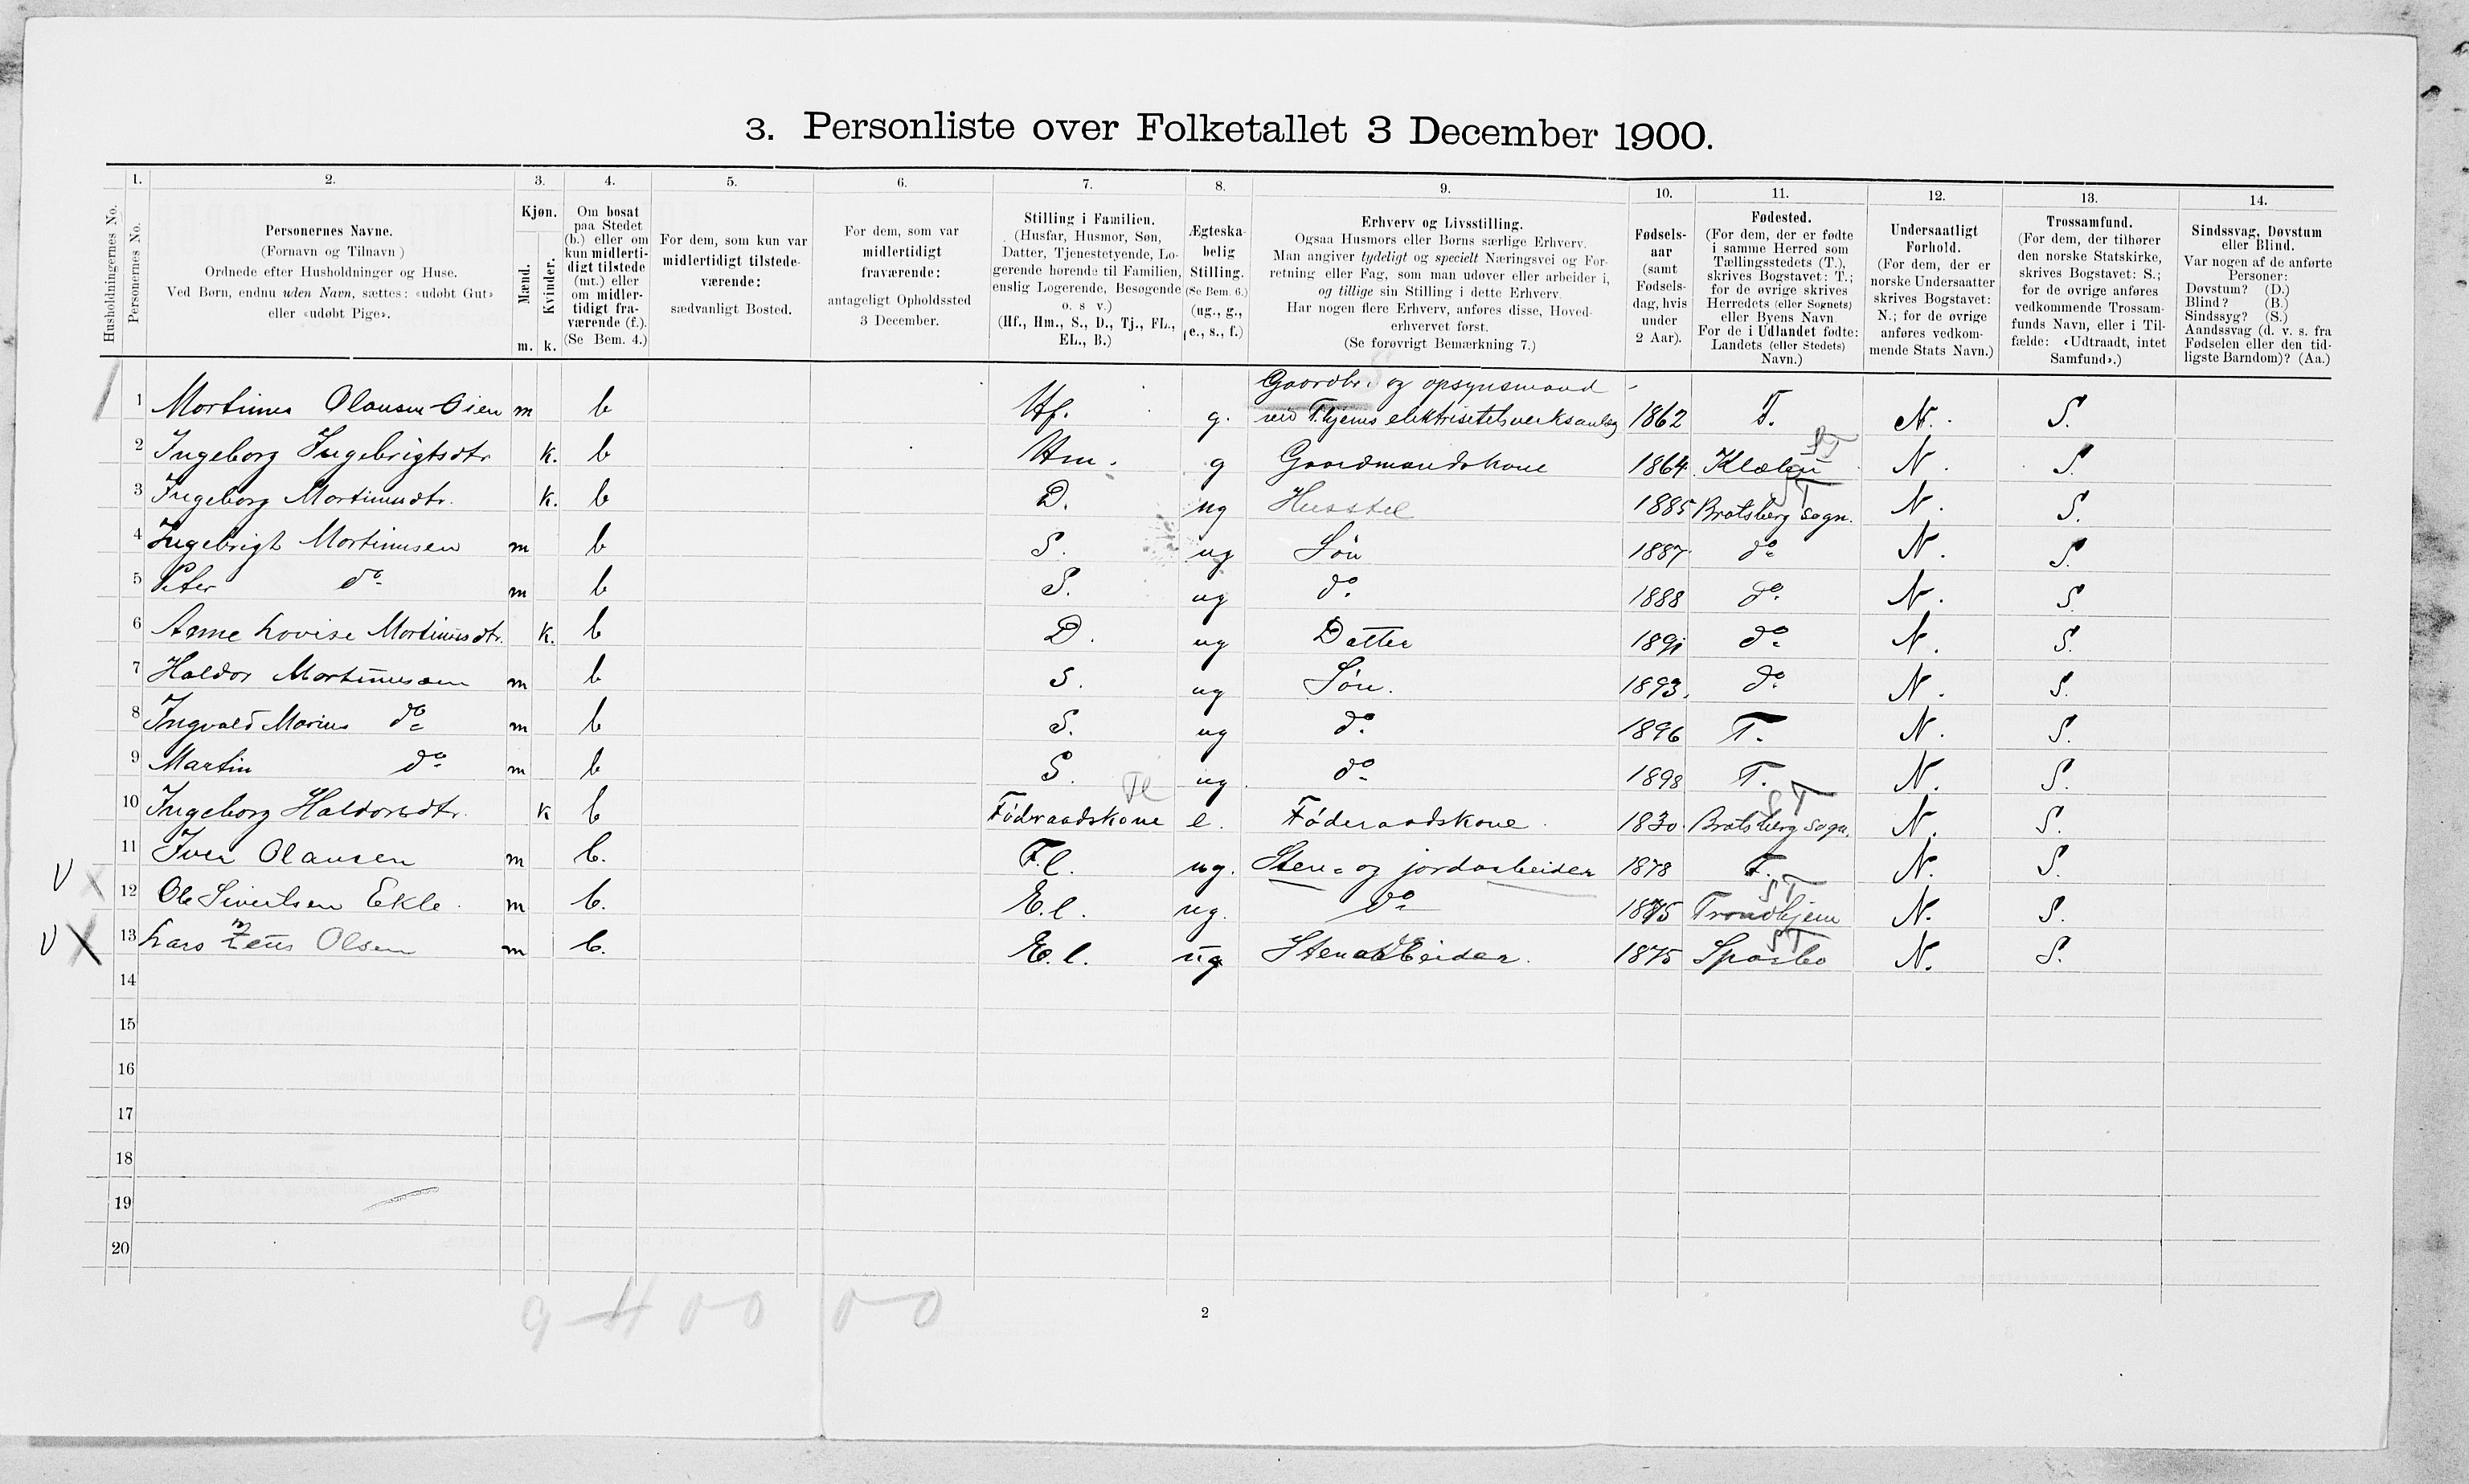 3. Personliste over Folketallet 3 December 1900.
1. 2. 3. 4. 5. 6. 7. 8. 9. 10. 11. 12. 13. 14.
Husholdningernes No.
Personernes No.
Personernes Navne.
(Fornavn og Tilnavn )
Ordnede efter Husholdninger og Huse.
Ved Børn, endnu uden Navn, sættes: «udøbt Gut»
eller «udøbt Pige».
Kjøn.
Mænd.
Kvinder.
m. k.
Om bosat
paa Stedet
(b.) eller om
kun midlerti-
digt tilstede
(mt.) eller
om midler-
tidigt fra-
værende (f.).
(Se Bem. 4.)
For dem, som kun var
midlertidigt tilstede-
værende:
sædvanligt Bosted.
For dem, som var
midlertidigt
fraværende:
antageligt Opholdssted
3 December.
Stilling i Familien.
(Husfar, Husmor, Søn,
Datter, Tjenestetyende, Lo-
gerende hørende til Familien,
enslig Logerende, Besøgende
o. s v.)
(Hf., Hm., S., D., Tj., FL.,
EL., B.)
Ægteska-
belig
Stilling.
(Se Bem. 6.)
(ug., g.,
e., s., f.)
Erhverv og Livsstilling.
Ogsaa Husmors eller Børns særlige Erhverv.
Man angiver tydeligt og specielt Næringsvei og For-
retning eller Fag, som man udøver eller arbeider i,
og tillige sin Stilling i dette Erhverv.
Har nogen flere Erhverv, anføres disse, Hoved-
erhvervet først.
(Se forøvrigt Bemærkning 7.)
Fødsels-
aar
(samt
Fødsels-
dag, hvis
under
2 Aar).
Fødested.
(For dem, der er fødte
i samme Herred som
Tællingsstedets (T.),
skrives Bogstavet: T.;
for de øvrige skrives
Herredets (eller Sognets)
eller Byens Navn
For de i Udlandet fødte:
Landets (eller Stedets)
Navn.)
Undersaatligt
Forhold.
(For dem, der er
norske Undersaatter
skrives Bogstavet:
N.; for de øvrige
anføres vedkom-
mende Stats Navn.)
Trossamfund.
(For dem, der tilhører
den norske Statskirke,
skrives Bogstavet: S.;
for de øvrige anføres
vedkommende Trossam-
funds Navn, eller i Til-
fælde: «Udtraadt, intet
Samfund».)
Sindssvag, Døvstum
eller Blind.
Var nogen af de anførte
Personer:
Døvstum? (D.)
Blind? (B.)
Sindssyg? (S.)
Aandssvag (d. v. s. fra
Fødselen eller den tid-
ligste Barndom)? (Aa.)
Gaardbr. og opsynsmand
1 Mortinus Olausen Øien m b Hf. g. ved Thjems elektrisitetsverksanlæg 1862 T. N. S.
2 Ingeborg Ingebrigtsdtr k. b Hm. g Gaardmandskone 1864 Klæbu ST N. S.
3 Ingeborg Mortinusdtr. k. b D. ug Husstel 1885 Bratsberg sogn. ST N. S.
4 Ingebrigt Mortinusen m b S. ug Søn 1887 do N. S.
5 Peter do m b S. ug do 1888 do N. S.
6 Anne Lovise Mortinusdtr. k. b D. ug Datter 1891 do N. S.
7 Haldor Mortinusen m b S. ug Søn. 1893. do N. S.
8 Ingvald Marius do m b S. ug do 1896 T. N. S.
9 Martin do m b S. ug do 1898 T. N. S.
10 Ingeborg Haldorsdtr. k b Føderaadskone Fl e. Føderaadskone. 1830 Bratsberg sogn. ST N. S.
11 Iver Olausen m b. F.l. ug. Sten- og jordarbeider 1878 T. N. S.
12 Ole Sivertsen Ekle. m b. E.l. ug. do 1875 Trondhjem ST N. S.
13 Lars Olsen m b. E.l. ug Stenarbeider. 1875 Sparbo ST N. S.
14
15
16
17
18
19
20
2